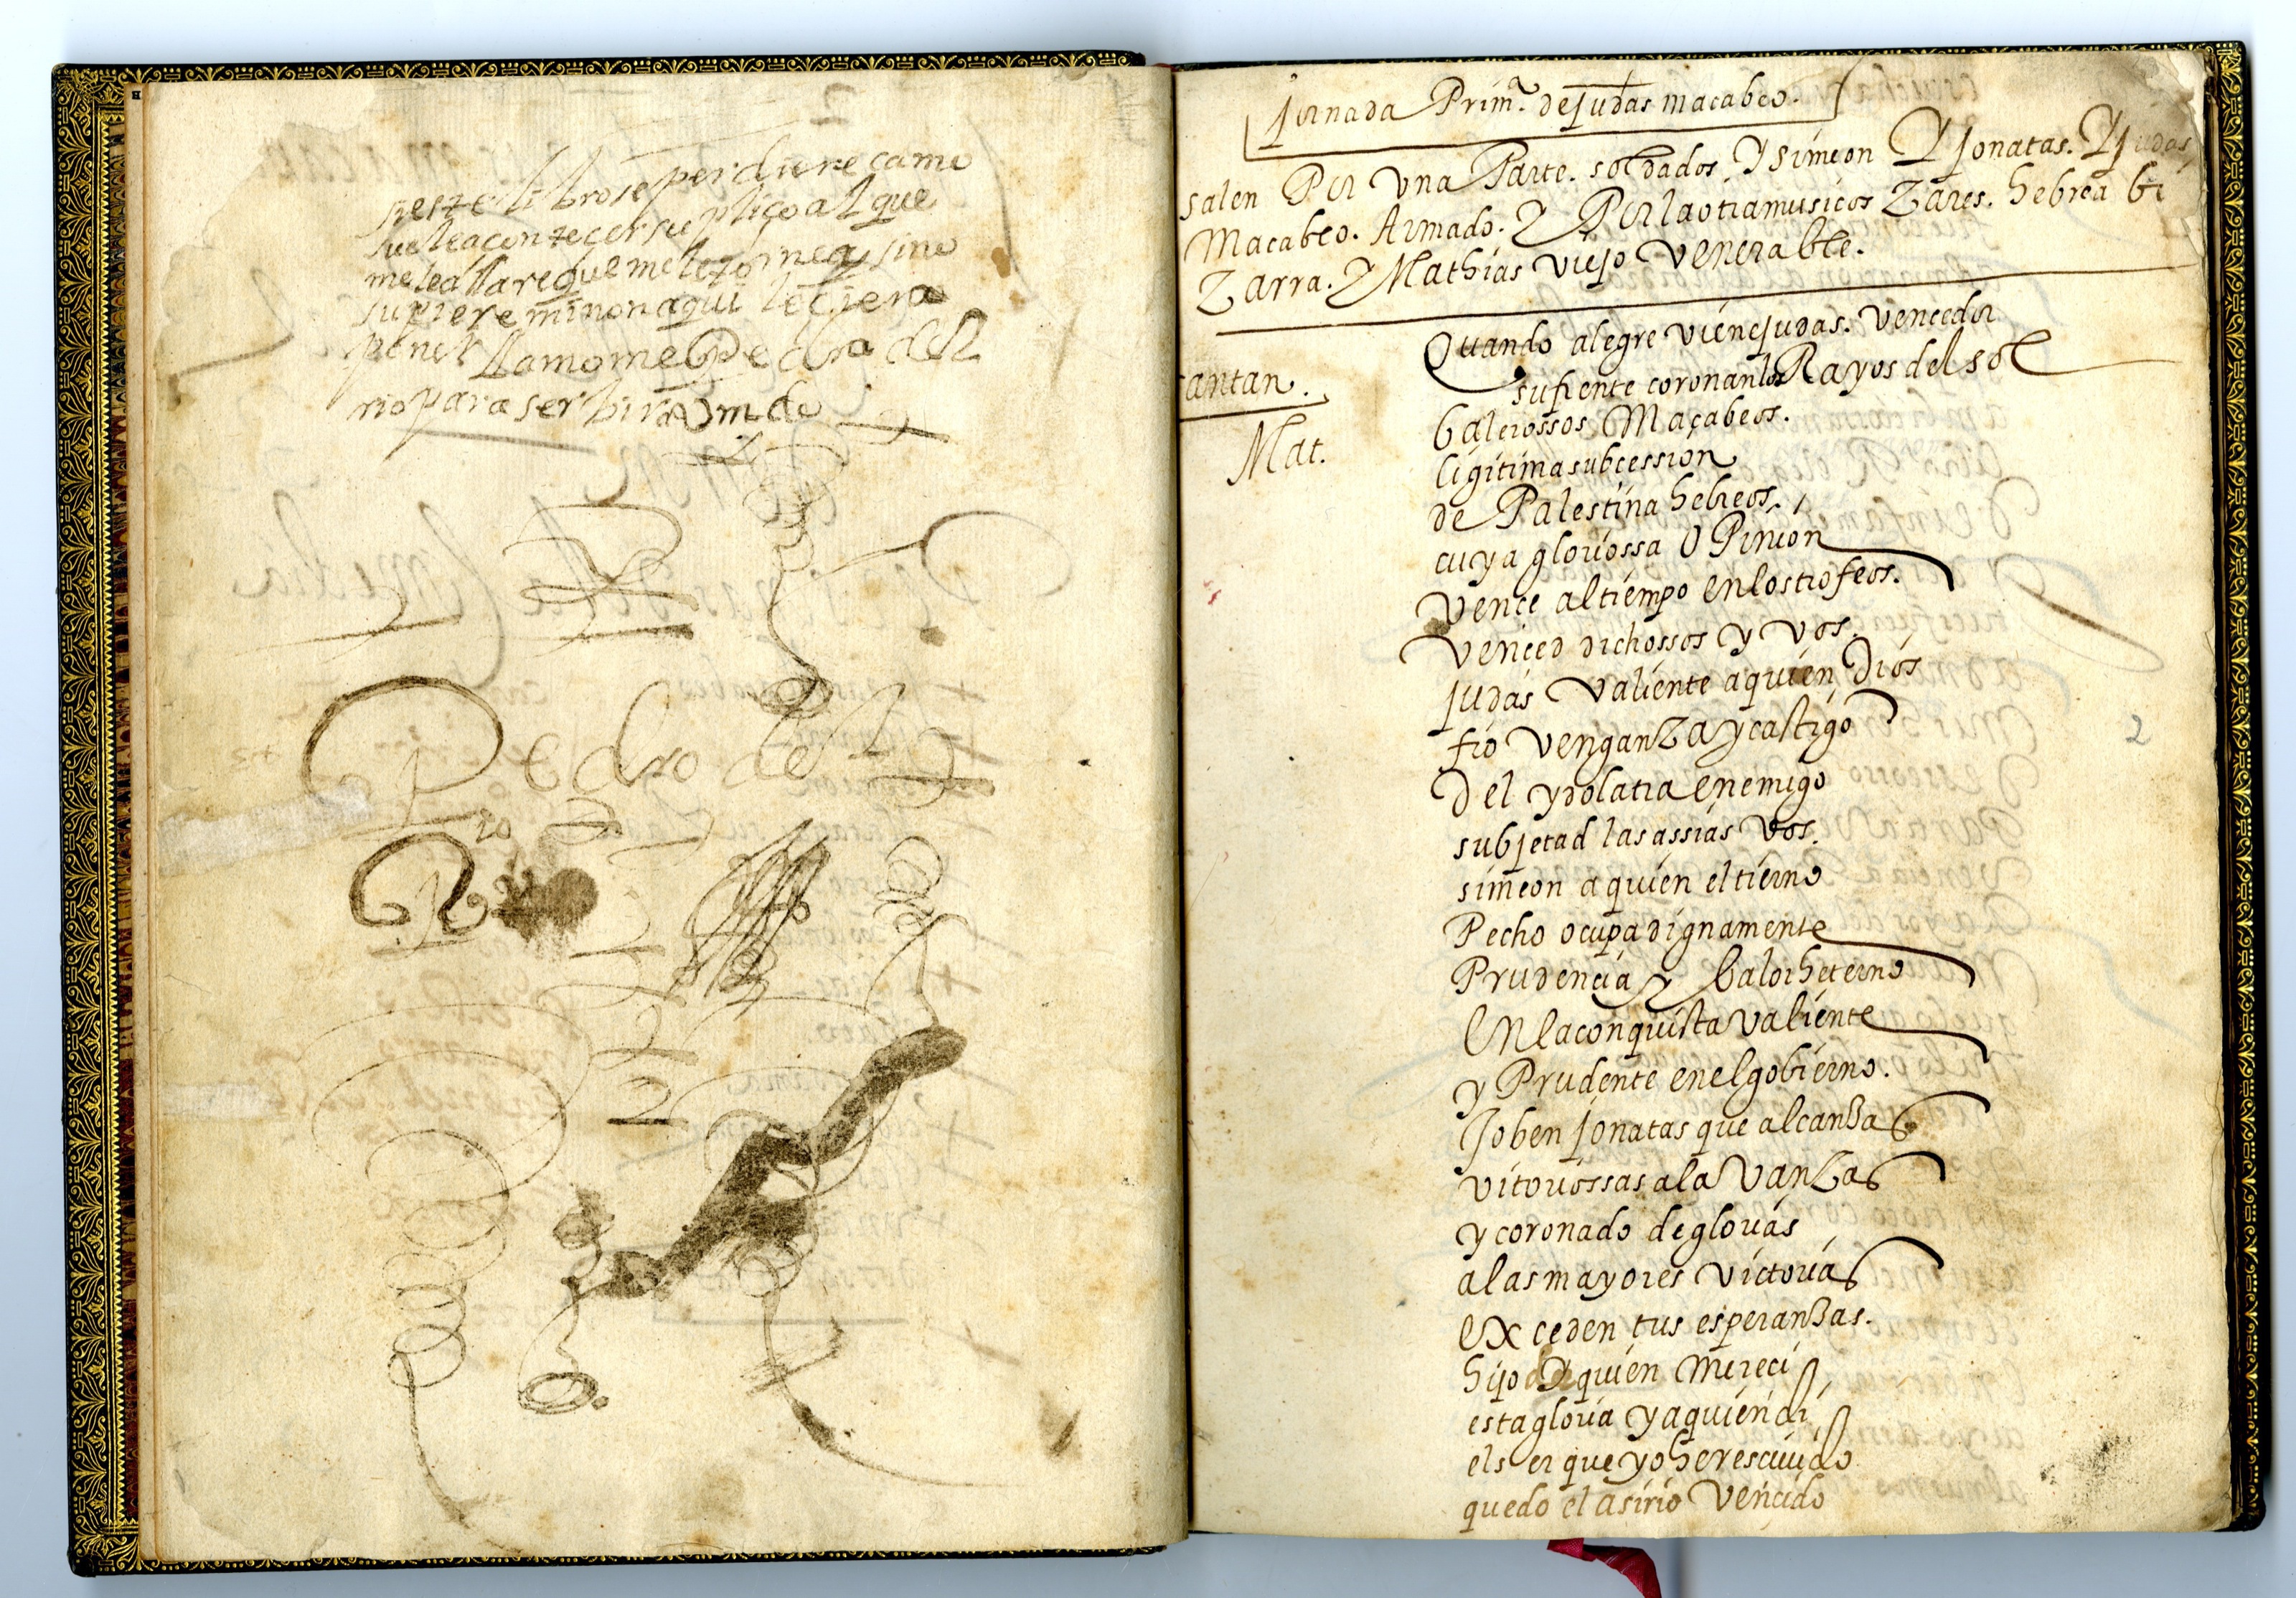 si este libro se perdiere como
suele acontecer suplico al que
me le allare que me lo torne y sino
supiere mi nonbre aqui le quiero
poner llamome Pedro del
rio para serbir a Vm de
Pedro del R
rio
2
jornada Prim.ª de judas macabeo.
salen Por Vna Parte. soldados. Y simeon Y jonatas. Y judas,
Macabeo. Armado. Y Por la otra musicos Zares. hebrea bi
Zarra. Y Mathias viejo Venerable.
Quando alegre viene judas. Vencedor
cantan.
su frente coronan los Rayos del sol
Mat.
balerossos Maçabeos.
ligitima subcession
de Palestina hebreos.
cuya gloriossa O Pinion
Vençe al tiempo en los trofeos.
Venced dichossos y vos.
judas Valiente a quien Dios
fio Venganza y castigo
Del ydolatra enemigo
subjetad las assias Vos.
simeon a quien el tierno
Pecho ocupa dignamente
Prudencia y balor heterno
En la conquista valiente
y Prudente en el gobierno.
Joben jonatas que alcanzas
vitoriossas alavanzas
y coronado de glorias
a las mayores victorias
exceden tus esperanzas.
hijo De quien mereci
esta gloria y a quien di
el ser que yo he rescivido
quedo el asirio Vencido
2